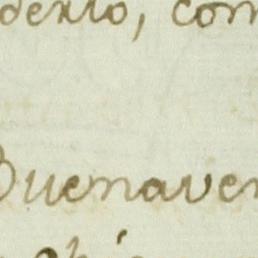 dexto, com
Buenaven